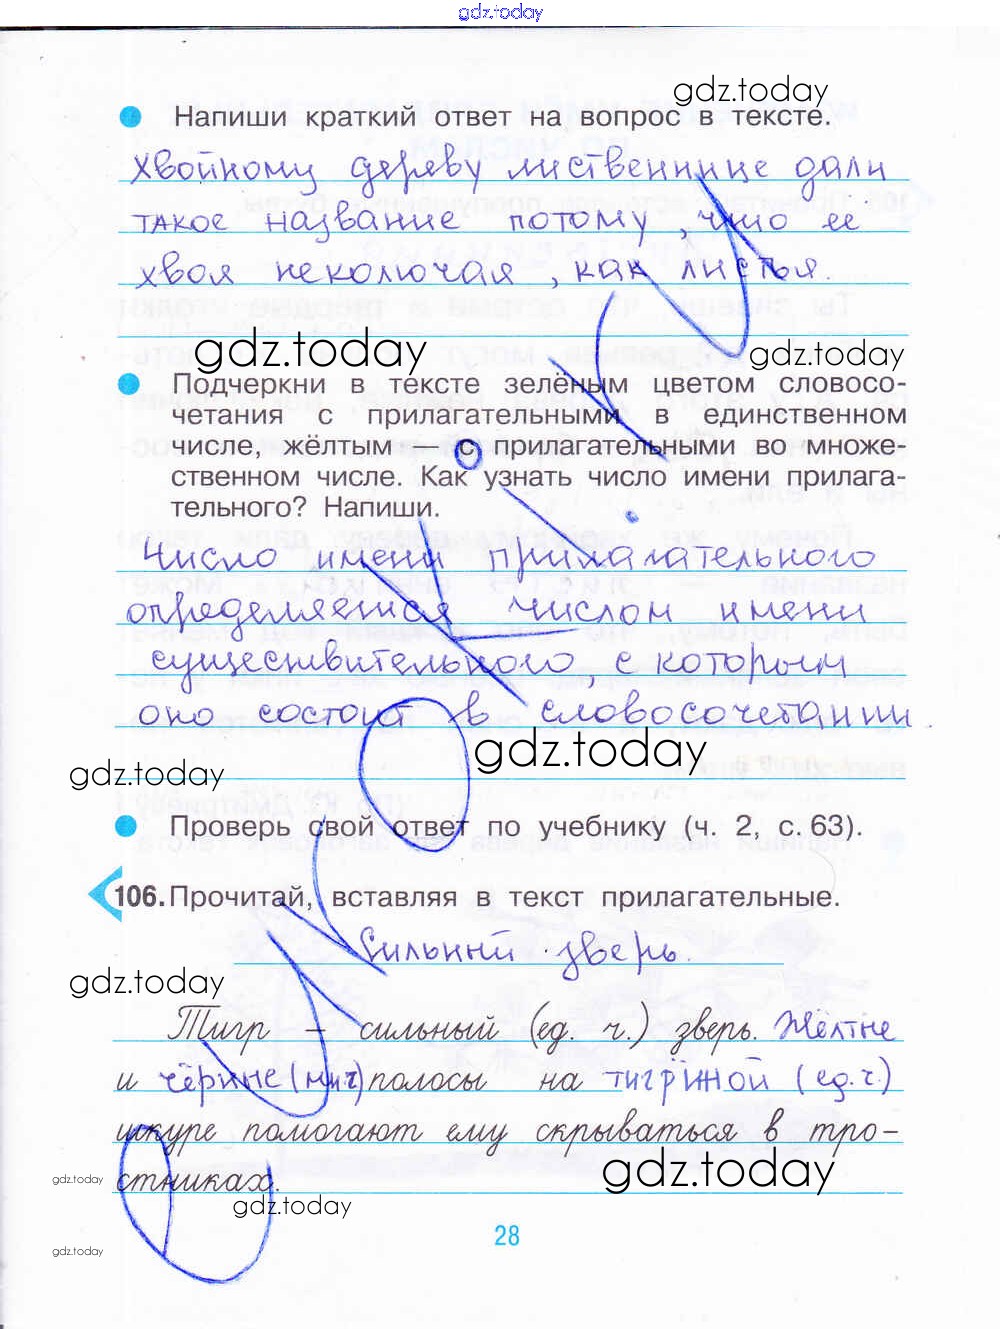 gdz.today
gdz.today
Напиши краткий ответ на вопрос в тексте.
Хвойному дереву лиственнице дали
такое название потому, что ее
хвоя неколючая, как листья.
gdz.today gdz.today
Подчеркни в тексте зелёным цветом словосо-
четания с прилагательными в единственном
числе, жёлтым — с прилагательными во множе-
ственном числе. Как узнать число имени прилага-
тельного? Напиши.
Число имени прилагательного
определяется числом имени
существительного, с которым
оно состоит в словосочетании
gdz.today gdz.today
Проверь свой ответ по учебнику (ч. 2, с. 63).
106. Прочитай, вставляя в текст прилагательные.
Сильный зверь.
gdz.today gdz.today
Тигр – сильный (ед. ч.) зверь. Жёлтые
и чёрные (мн.ч) полосы на тигриной (ед.ч.)
шкуре помогают ему скрываться в тро-
стниках.
gdz.today gdz.today
gdz.today
gdz.today
28